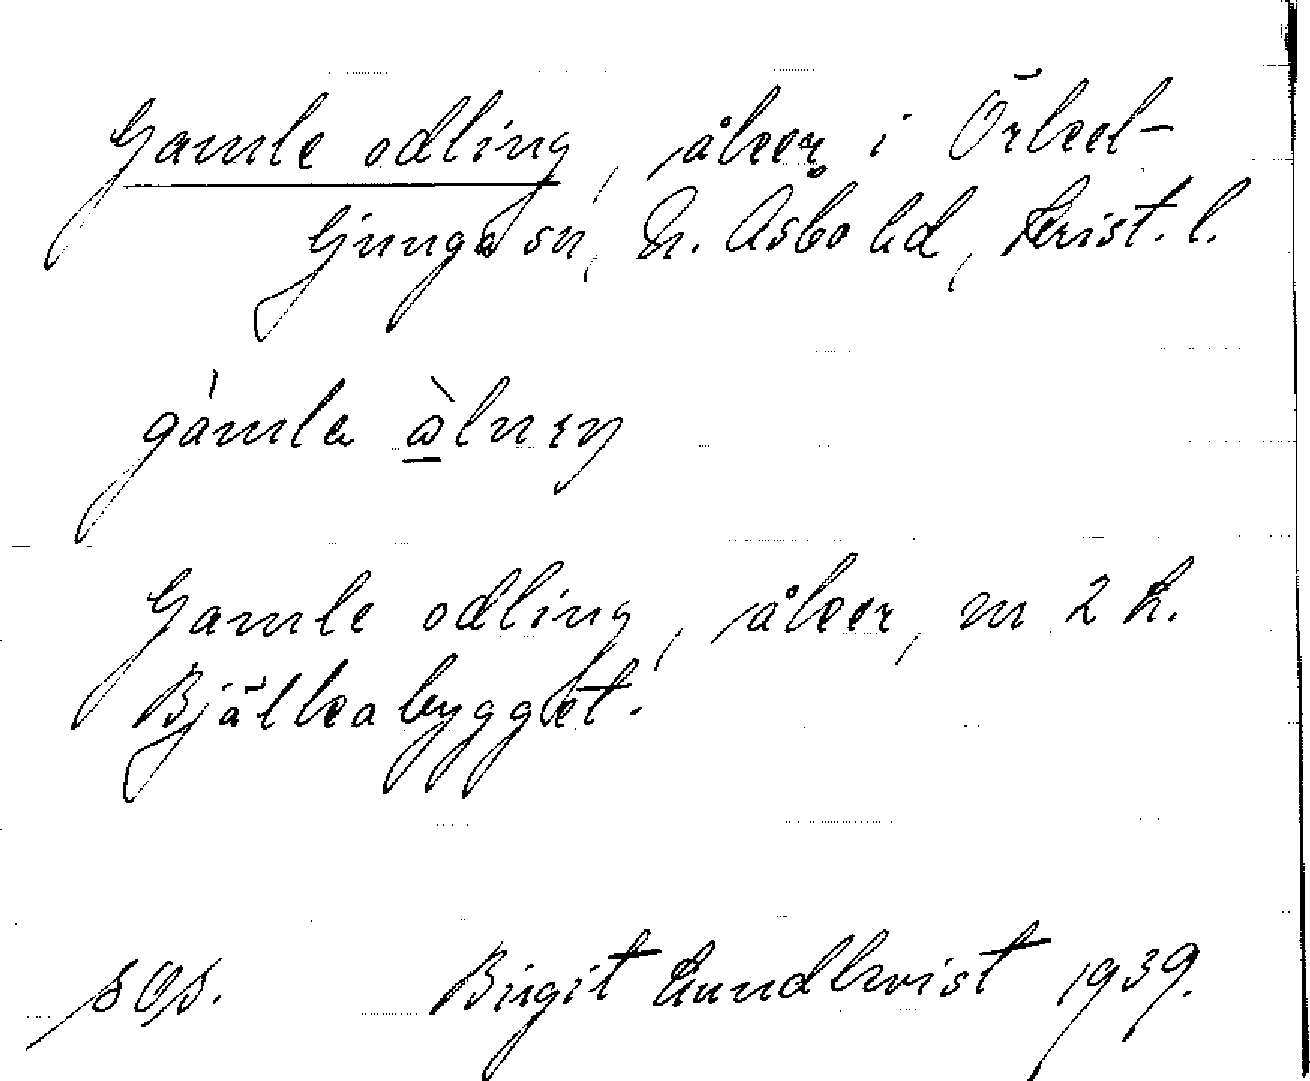 Gamle odling, åker i Örkel-
ljunga sn, N. Åsbo hd, Krist. l.
gámla
Gamle odling, åker, m 2 k.
Bjälkabygget.
sOs. Birgit Lundkvist 1939.